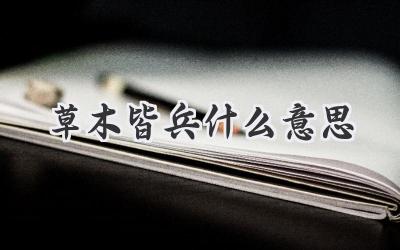 草木皆兵什么意思